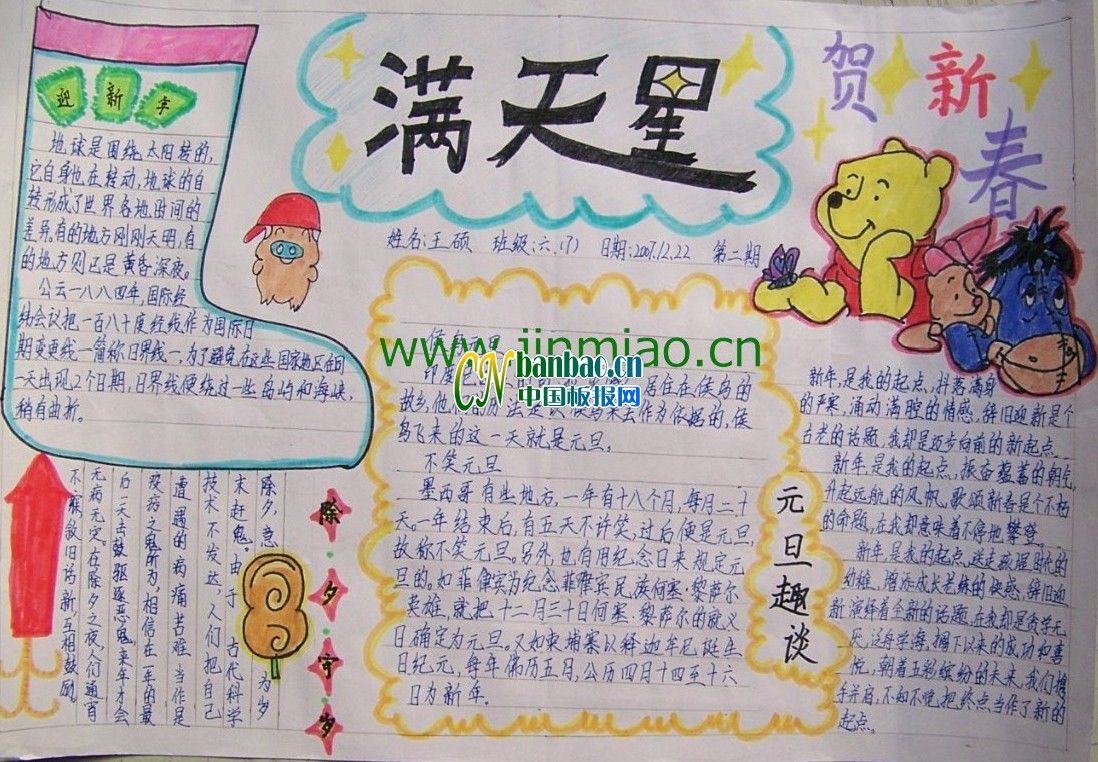 满天星
贺新春
姓名:王硕 班级:六.(7) 日期:2007.12.22 第二期
迎新年
地球是围绕太阳转的,
它自身也在转动,地球的自
转形成了世界各地时间的
差异。有的地方刚刚天明,有
的地方则已是黄昏深夜。
公云一八八四年,国际经
线会议把一百八十度经线作为国际日
期变更线一简称日界线一,为了避免在这些国家地区在同
一天出现2个日期,日界线便绕过一些岛屿和海峡,
稍有曲折。
除夕守岁
除夕,意 为岁
末赶鬼。由于 古代科学
技术不发达,人们把自己
遭遇的病痛苦难当作是
疫病之鬼所为,相信在一年的最
后一天击鼓驱逐恶鬼,来年才会
无病无灾。在除夕之夜,人们通宵
不眠,叙旧话新,互相鼓励。
元旦趣谈
候鸟元旦
居住在候鸟的
故乡,他们的历法是以候鸟来去作为依据的,候
鸟飞来的这一天就是元旦。
不笑元旦
墨西哥有些地方,一年有十八个月,每月二十
天。一年结束后,有五天不许笑,过后便是元旦,
故称不笑元旦。另外,也有用纪念日来规定元
旦的。如菲律宾为纪念菲律宾民族何塞·黎萨尔
英雄,就把十二月三十日何塞·黎萨尔的就义
日确定为元旦。又如柬埔寨以释迦牟尼诞生
日纪元,每年佛历五月,公历四月十四至十六
日为新年。
新年,是我的起点,抖落满身
的严寒,涌动满腔的情感,辞旧迎新是个
古老的话题,我却是迈步向前的新起点。
新年,是我的起点,振奋蓬蓄的朝气,
升起远航的风帆,歌颂新春是个不朽
的命题,在我却意味着不停地攀登。
新年,是我的起点,送走孩提时代的
幼雉,增添成长老练的快感,辞旧迎
新演绎着全新的话题,在我却是苦学无
厌,泛舟学海,搁下以来的成功和喜
悦,朝着五彩缤纷的未来,我们携
手并肩,不知不觉,把终点当作了新的
起点。
www.jinmiao.cn
CN banbao.cn
中国板报网